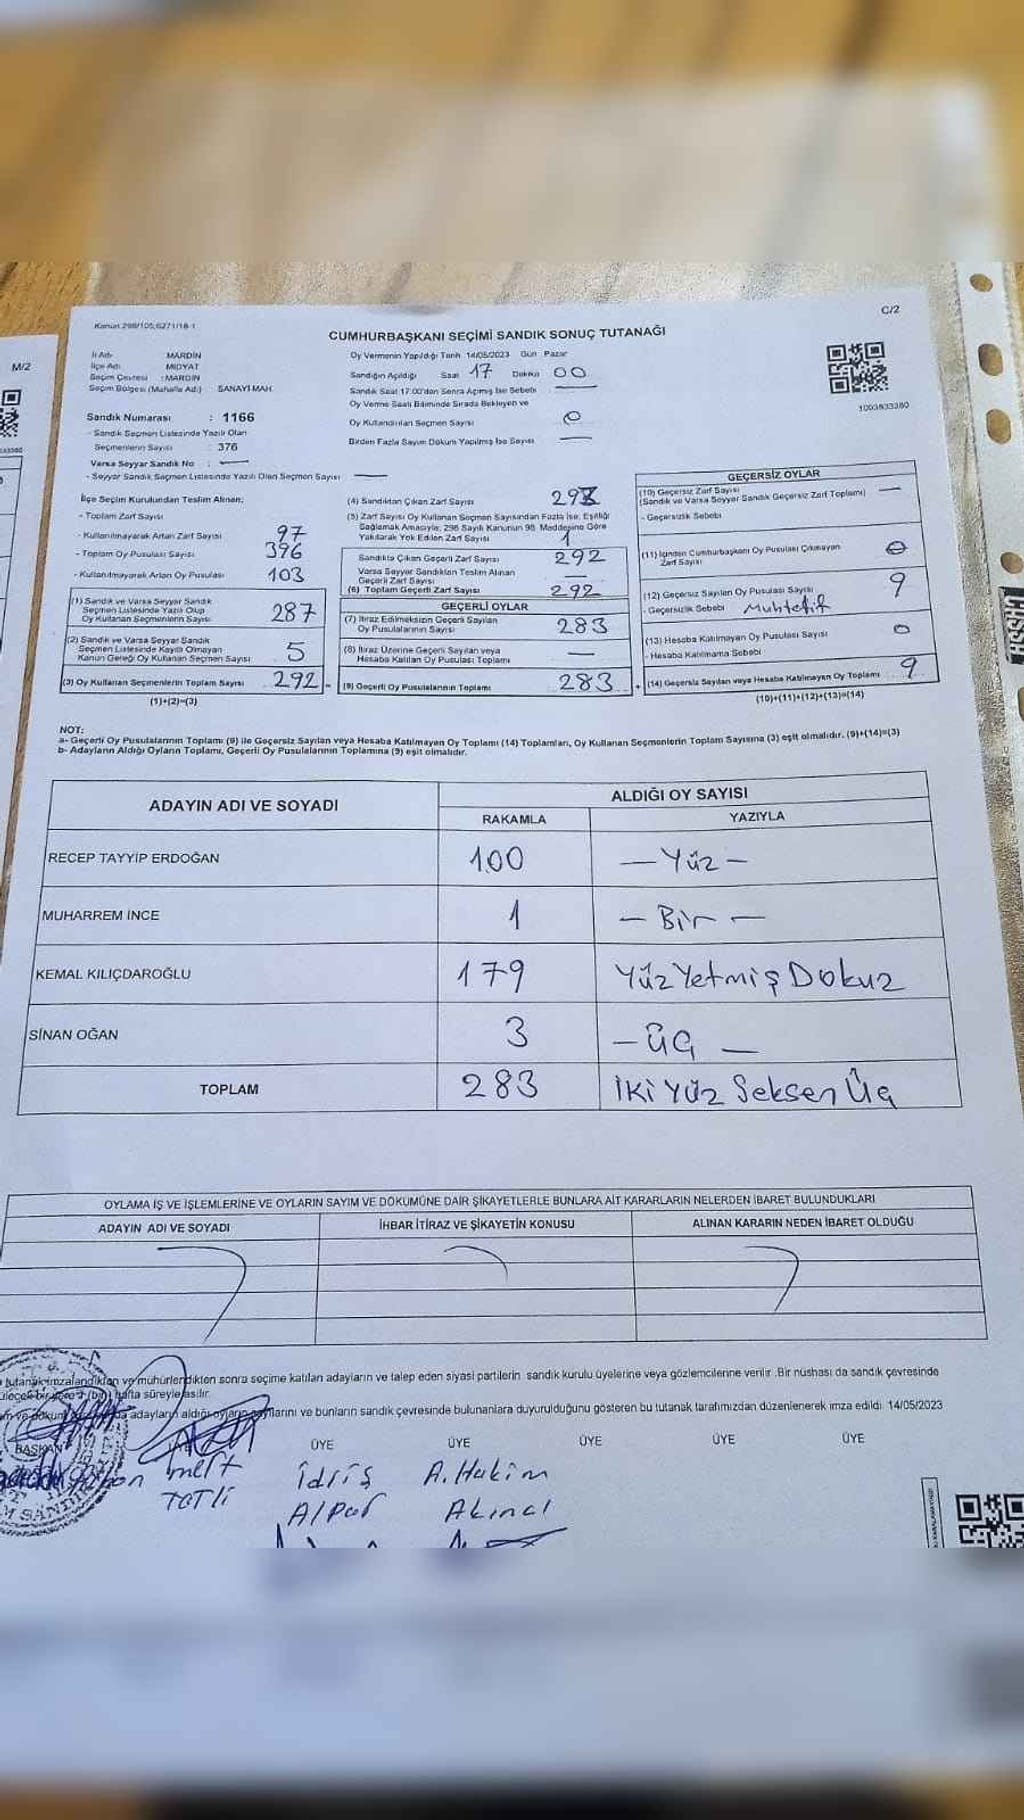 C/2
M/2
Kanun 298/105;6271/18-1
CUMHURBAŞKANI SEÇİMİ SANDIK SONUÇ TUTANAĞI
İl Adı MARDİN
İlçe Adı MİDYAT
Seçim Çevresi : MARDİN
Seçim Bölgesi (Mahalle Adı) SANAYİ MAH.
Sandık Numarası : 1166
- Sandık Seçmen Listesinde Yazılı Olan
Seçmenlerin Sayısı : 376
Varsa Seyyar Sandık No : —
- Seyyar Sandık Seçmen Listesinde Yazılı Olan Seçmen Sayısı —
Oy Vermenin Yapıldığı Tarih 14/05/2023 Gün Pazar
Sandığın Açıldığı Saat 17 Dakika 00
Sandık Saat 17:00'den Sonra Açımış İse Sebebi —
Oy Verme Saati Bitiminde Sırada Bekleyen ve
Oy Kullandırılan Seçmen Sayısı 0
Birden Fazla Sayım Döküm Yapılmış İse Sayısı —
1003833380
İlçe Seçim Kurulundan Teslim Alınan;
- Toplam Zarf Sayısı
- Kullanılmayarak Artan Zarf Sayısı 97
- Toplam Oy Pusulası Sayısı 396
- Kullanılmayarak Artan Oy Pusulası 103
(1) Sandık ve Varsa Seyyar Sandık
Seçmen Listesinde Yazılı Olup
Oy Kullanan Seçmenlerin Sayısı 287
(2) Sandık ve Varsa Seyyar Sandık
Seçmen Listesinde Kayıtlı Olmayan
Kanun Gereği Oy Kullanan Seçmen Sayısı 5
(3) Oy Kullanan Seçmenlerin Toplam Sayısı 292
(1)+(2)=(3)
(4) Sandıktan Çıkan Zarf Sayısı
(5) Zarf Sayısı Oy Kullanan Seçmen Sayısından Fazla İse; Eşitliği
Sağlamak Amacıyla, 298 Sayılı Kanunun 98. Maddesine Göre
Yakılarak Yok Edilen Zarf Sayısı 1
Sandıkta Çıkan Geçerli Zarf Sayısı 292
Varsa Seyyar Sandıktan Teslim Alınan
Geçerli Zarf Sayısı —
(6) Toplam Geçerli Zarf Sayısı 292
GEÇERLİ OYLAR
(7) İtiraz Edilmeksizin Geçerli Sayılan
Oy Pusulalarının Sayısı 283
(8) İtiraz Üzerine Geçerli Sayılan veya
Hesaba Katılan Oy Pusulası Toplamı —
(9) Geçerli Oy Pusulalarının Toplamı 283
GEÇERSİZ OYLAR
(10) Geçersiz Zarf Sayısı
(Sandık ve Varsa Seyyar Sandık Geçersiz Zarf Toplamı) —
- Geçersizlik Sebebi
(11) İçinden Cumhurbaşkanı Oy Pusulası Çıkmayan
Zarf Sayısı 0
(12) Geçersiz Sayılan Oy Pusulası Sayısı 9
- Geçersizlik Sebebi Muhtelif
(13) Hesaba Katılmayan Oy Pusulası Sayısı 0
- Hesaba Katılmama Sebebi
(14) Geçersiz Sayılan veya Hesaba Katılmayan Oy Toplamı 9
(10)+(11)+(12)+(13)=(14)
NOT:
a- Geçerli Oy Pusulalarının Toplamı (9) ile Geçersiz Sayılan veya Hesaba Katılmayan Oy Toplamı (14) Toplamları, Oy Kullanan Seçmenlerin Toplam Sayısına (3) eşit olmalıdır. (9)+(14)=(3)
b- Adayların Aldığı Oyların Toplamı, Geçerli Oy Pusulalarının Toplamına (9) eşit olmalıdır.
ADAYIN ADI VE SOYADI ALDIĞI OY SAYISI
RAKAMLA YAZIYLA
RECEP TAYYİP ERDOĞAN 100 — Yüz —
MUHARREM İNCE 1 — Bir —
KEMAL KILIÇDAROĞLU 179 Yüz Yetmiş Dokuz
SİNAN OĞAN 3 — üç —
TOPLAM 283 İki Yüz Seksen Üç
OYLAMA İŞ VE İŞLEMLERİNE VE OYLARIN SAYIM VE DÖKÜMÜNE DAİR ŞİKAYETLERLE BUNLARA AİT KARARLARIN NELERDEN İBARET BULUNDUKLARI
ADAYIN ADI VE SOYADI İHBAR İTİRAZ VE ŞİKAYETİN KONUSU ALINAN KARARIN NEDEN İBARET OLDUĞU
tutanak imzalandıktan ve mühürlendikten sonra seçime katılan adayların ve talep eden siyasi partilerin sandık kurulu üyelerine veya gözlemcilerine verilir. Bir nüshası da sandık çevresinde
hafta süreyle asılır.
adayların aldığı oyların sayılarını ve bunların sandık çevresinde bulunanlara duyurulduğunu gösteren bu tutanak tarafımızdan düzenlenerek imza edildi. 14/05/2023
BAŞKAN ÜYE ÜYE ÜYE ÜYE ÜYE
mert İdris A. Hakim
TATLİ Alpar Akınal